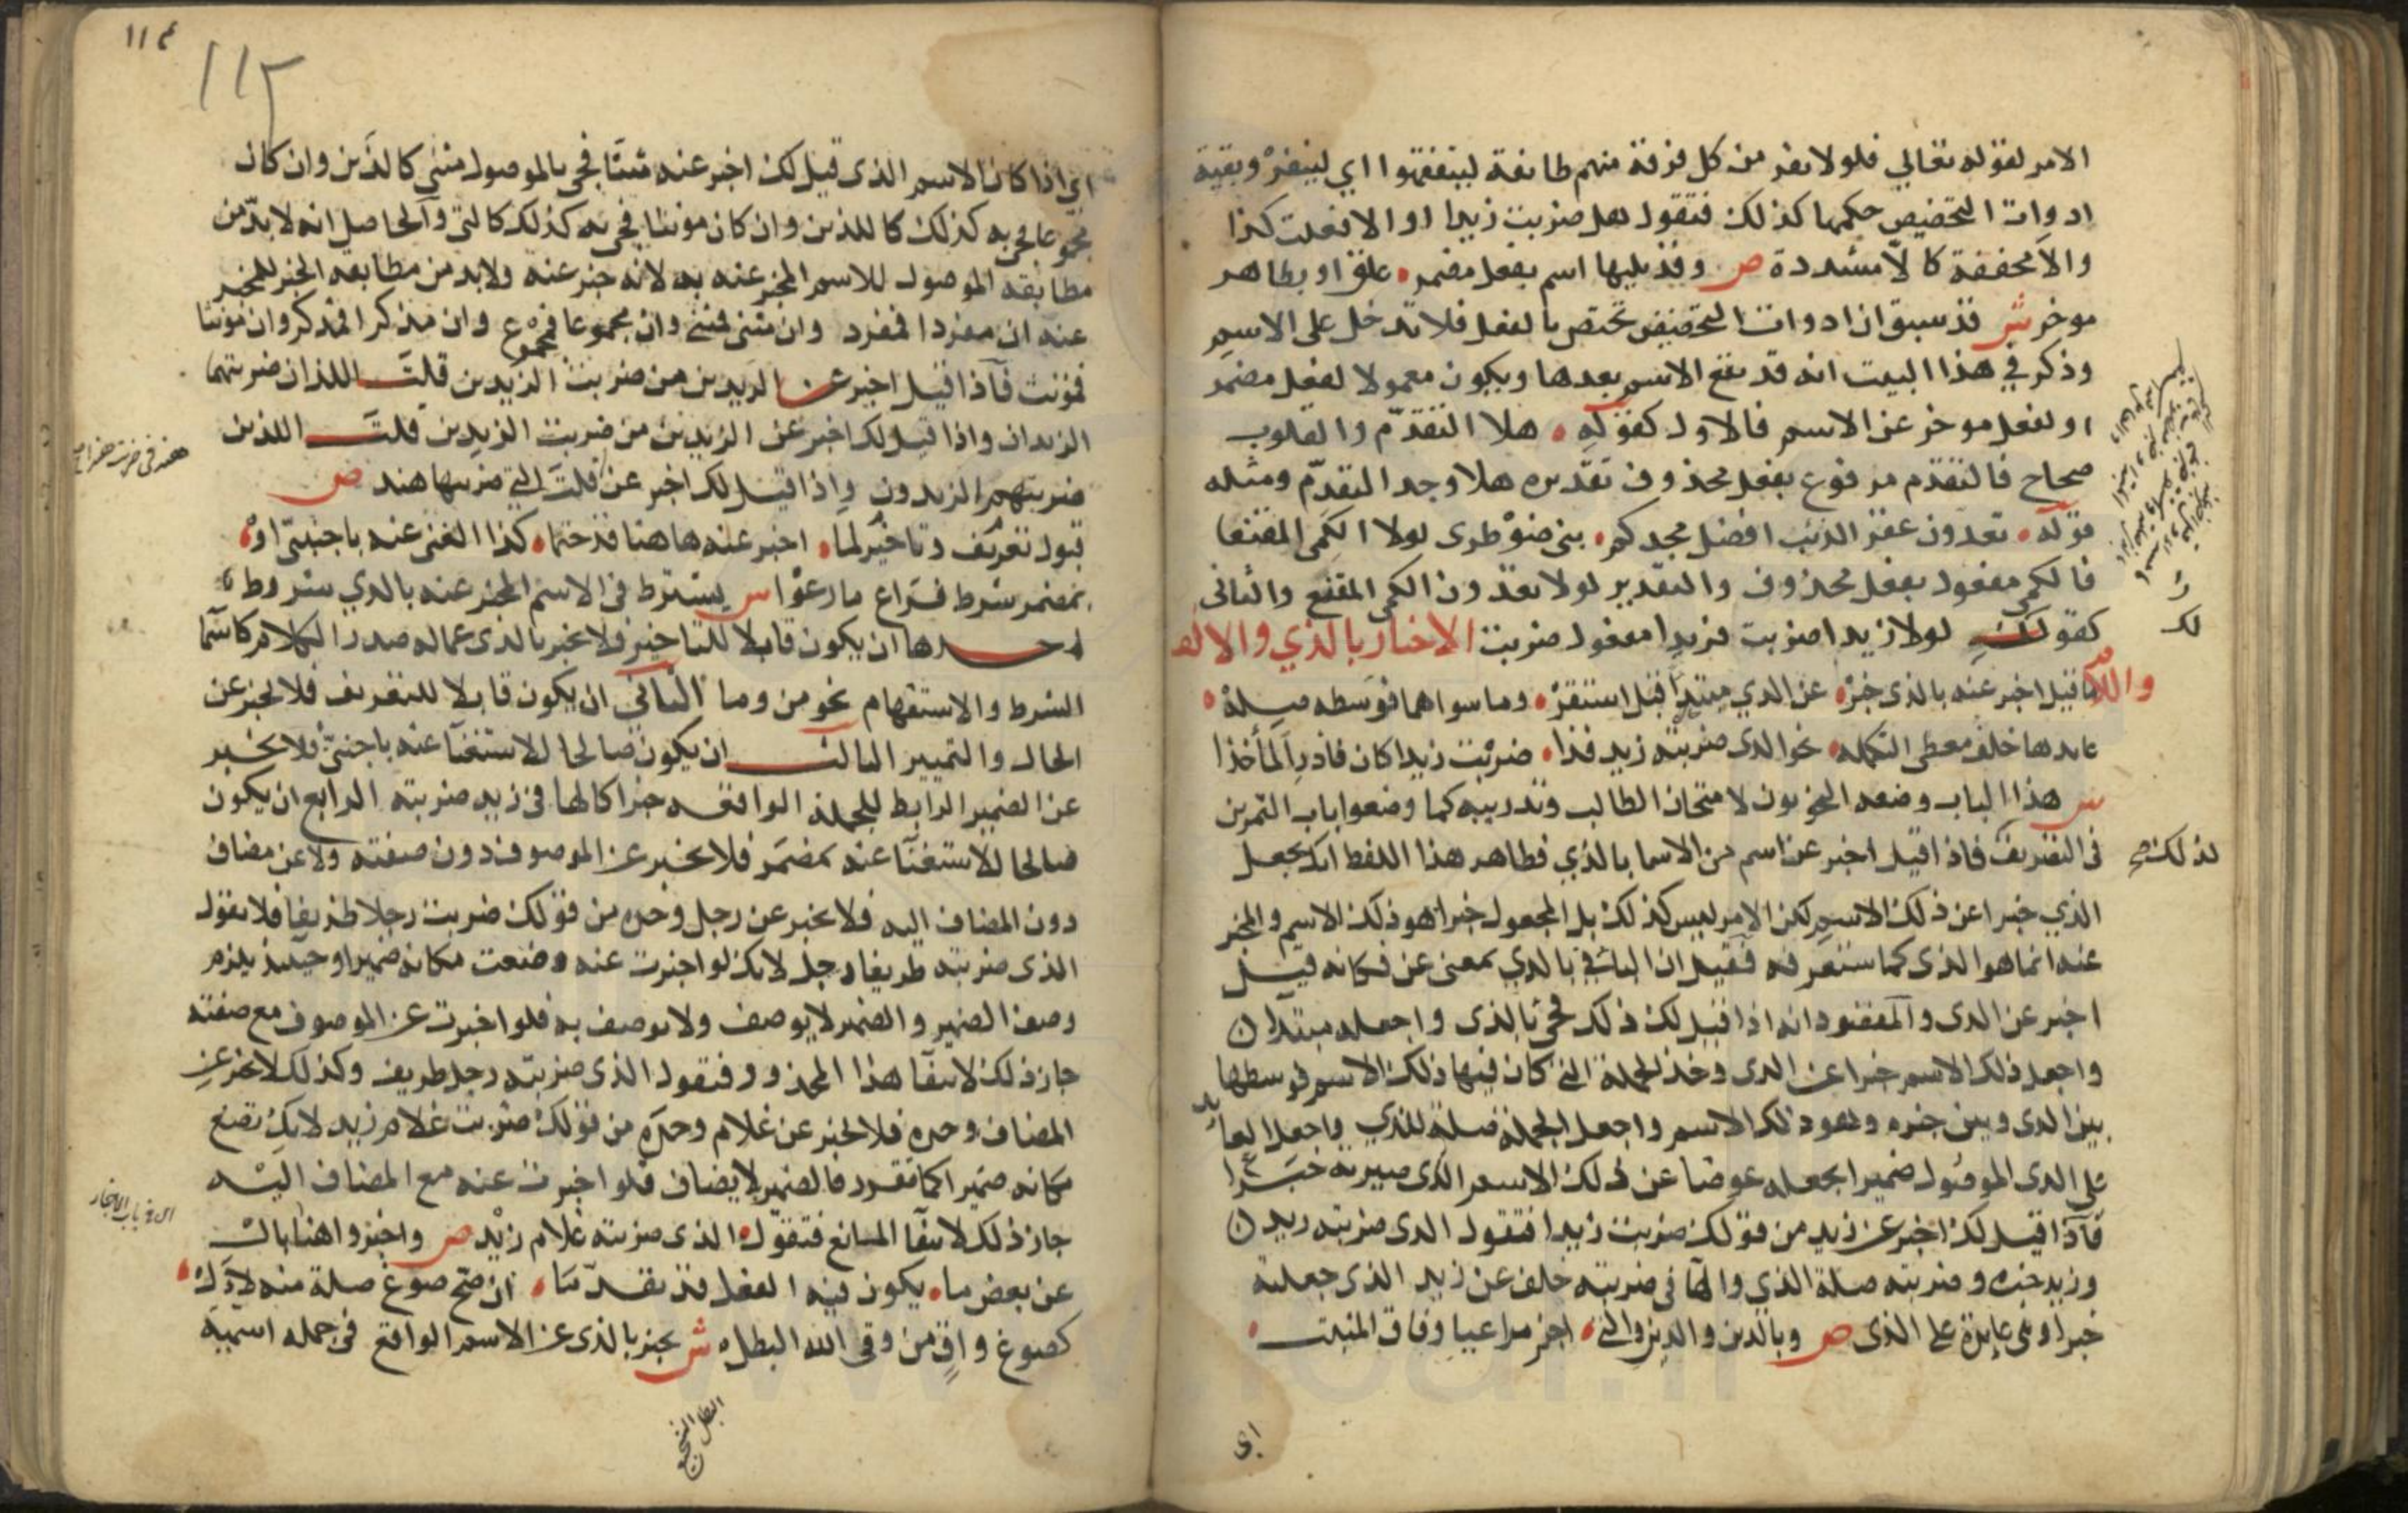 الامر لقوله تعالي فلولا نفر من كل فرقة منهم طائفة ليتفقهوا اي لينفر وبقية
ادوات التحضيض حكمها كذلك فتقول هل ضربت زيدا او الا فعلت كذا
والا مخففة كالا مشددة ص وقد يليها اسم بفعل مضمر علق او بظاهر
موخر ش قد سبق ان ادوات التحضيض تختص بالفعل فلا تدخل على الاسم
وذكر في هذا البيت انه قد يقع الاسم بعدها ويكون معمولا لفعل مضمر
او لفعل موخر عن الاسم فالاول كقوله هلا التقدم والقلوب
صحاح فالتقدم مرفوع بفعل محذوف تقديره هلا وجد التقدم ومثله
قوله تعدون عقر النيب افضل مجدكم بني ضوطرى لولا الكمى المقنعا
فالكمى مفعول بفعل محذوف والتقدير لولا تعدون الكمى المقنع والثاني
كقولك لولا زيدا ضربت فزيدا مفعول ضربت الاخبار بالذي والالف
واللام
ما قيل اخبر عنه بالذى خبر عن الذي مبتدا قبل استقر وما سواهما فوسطه صلة
عايدها خلف معطى التكمله نحو الذى ضربته زيد فذا ضربت زيدا كان فادر المأخذا
ش هذا الباب وضعه النحويون لامتحان الطالب وتدريبه كما وضعوا باب التمرين
فى التصريف لذلك صح فاذا قيل اخبر عن اسم من الاسما بالذي فظاهر هذا اللفظ انك تجعل
الذي خبرا عن ذلك الاسم لكن الامر ليس كذلك بل المجعول خبرا هو ذلك الاسم والمخبر
عنه انما هو الذى كما ستعرفه فقيل ان البا في بالذي بمعنى عن فكانه قيل
اخبر عن الذى والمقصود انه اذا قيل لك ذلك فجئ بالذى واجعله مبتدا
واجعل ذلك الاسم خبرا عن الذى وخذ الجملة التى كان فيها ذلك الاسم فوسطها
بين الذى وبين خبره وهو ذلك الاسم واجعل الجملة صلة للذي واجعل العايد
على الذى الموصول ضميرا تجعله عوضا عن ذلك الاسم الذى صيرته خبرا
فاذا قيل لك اخبر عن زيد من قولك ضربت زيدا فتقول الذى ضربته زيد
وزيد خبره وضربته صلة الذي والها في ضربته خلف عن زيد الذى جعلته
خبرا وهى عايدة على الذى ص وباللذين والذين والتى اخبر مراعيا وفاق المثبت
اى
١١٤
١١٣
اي اذا كان الاسم الذى قيل لك اخبر عنه مثنا فجئ بالموصول مثنى كاللذين وان كان
مجموعا فجئ به كذلك كالذين وان كان مونثا فجئ به كذلك كالتى والحاصل انه لا بد من
مطابقة الموصول للاسم المخبر عنه به لانه خبر عنه ولابد من مطابقة الخبر للمخبر
عنه ان مفردا فمفرد وان مثنى فمثنى وان مجموعا فمجموع وان مذكرا فمذكر وان مونثا
فمونث فاذا قيل اخبر عن الزيدين من ضربت الزيدين قلت اللذان ضربتهما
الزيدان واذا قيل لك اخبر عن الزيدين من ضربت الزيدين قلت الذين
ضربتهم الزيدون واذا قيل لك اخبر عن قلت التي ضربتها هند ص
قبول تعريف وتاخير لما اخبر عنه هاهنا قد حتما كذا الغنى عنه باجنبي او
بمضمر شرط فراع ما رعوا ش يشترط فى الاسم المخبر عنه بالذي شروط
احدها ان يكون قابلا للتاخير فلا يخبر بالذى عما له صدر الكلام كاسما
الشرط والاستفهام نحو من وما الثاني ان يكون قابلا للتعريف فلا يخبر عن
الحال والتمييز الثالث ان يكون صالحا للاستغنا عنه باجنبى فلا يخبر
عن الضمير الرابط للجملة الواقعه خبرا كالها فى زيد ضربته الرابع ان يكون
صالحا للاستغنا عنه بمضمر فلا يخبر عن الموصوف دون صفته ولا عن مضاف
دون المضاف اليه فلا يخبر عن رجل وحده من قولك ضربت رجلا ظريفا فلا تقول
الذى ضربته ظريفا رجل لانك لو اخبرت عنه وضعت مكانه ضميرا وحينيذ يلزم
وصف الضمير والضمير لا يوصف ولا يوصف به فلو اخبرت عن الموصوف مع صفته
جاز ذلك لانتفا هذا المحذور فتقول الذى ضربته رجل ظريف وكذلك لا تخبر عن
المضاف وحده فلا تخبر عن غلام وحده من قولك ضربت غلام زيد لانك تضع
مكانه ضميرا كما تقرر فالضمير لا يضاف فلو اخبرت عنه مع المضاف اليه
جاز ذلك لانتفا المانع فتقول الذى ضربته غلام زيد ص واخبروا هنا بال
عن بعض ما يكون فيه الفعل قد تقدما ان صح صوغ صلة منه لال
كصوغ واق من وقى الله البطل ش يخبر بالذى عن الاسم الواقع فى جمله اسميه
البطل الشجيع